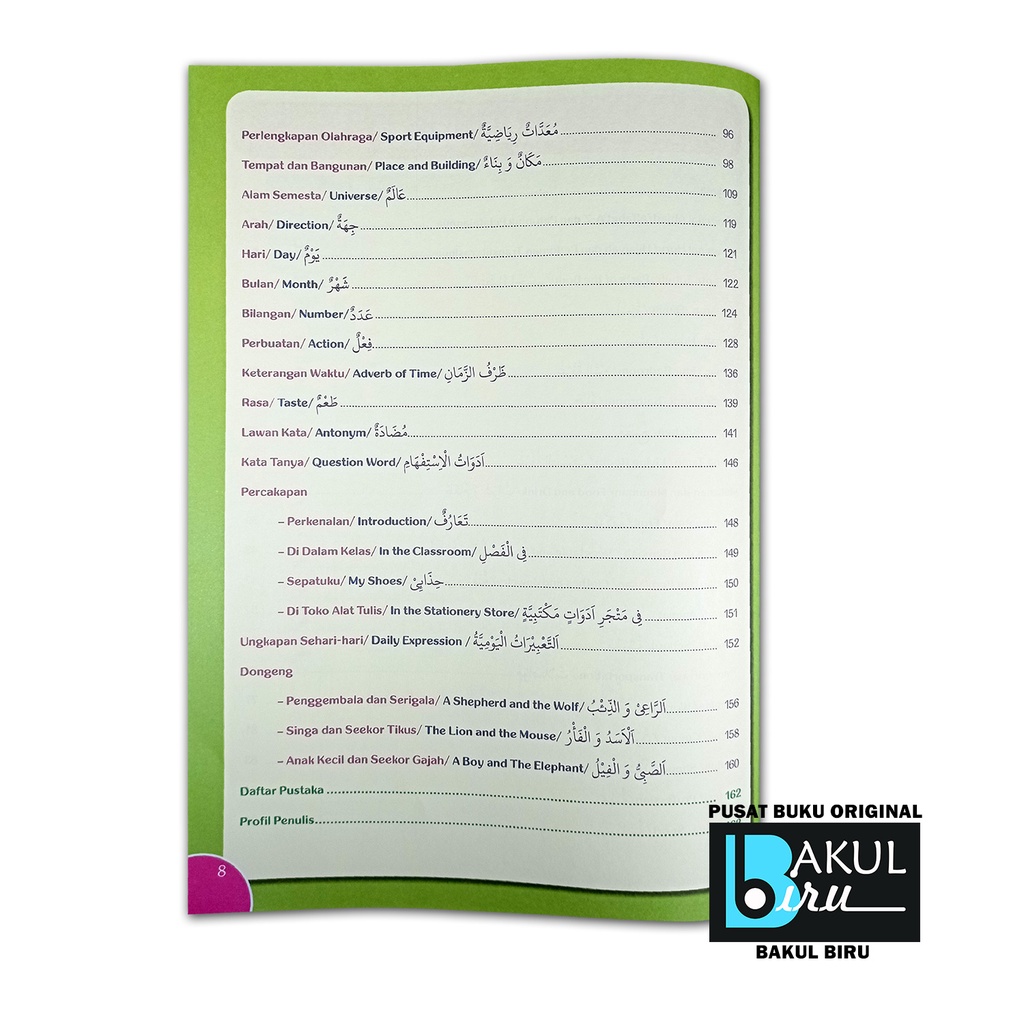 Perlengkapan Olahraga/ Sport Equipment/ مُعَدَّاتٌ رِيَاضِيَّةٌ ........ 96
Tempat dan Bangunan/ Place and Building/ مَكَانٌ وَ بِنَاءٌ ........ 98
Alam Semesta/ Universe/ عَالَمٌ ........ 109
Arah/ Direction/ جِهَةٌ ........ 119
Hari/ Day/ يَوْمٌ ........ 121
Bulan/ Month/ شَهْرٌ ........ 122
Bilangan/ Number/ عَدَدٌ ........ 124
Perbuatan/ Action/ فِعْلٌ ........ 128
Keterangan Waktu/ Adverb of Time/ ظَرْفُ الزَّمَانِ ........ 136
Rasa/ Taste/ طَعْمٌ ........ 139
Lawan Kata/ Antonym/ مُضَادَةٌ ........ 141
Kata Tanya/ Question Word/ اَدَوَاتُ الْاِسْتِفْهَامِ ........ 146
Percakapan
– Perkenalan/ Introduction/ تَعَارُفٌ ........ 148
– Di Dalam Kelas/ In the Classroom/ فِى الْفَصْلِ ........ 149
– Sepatuku/ My Shoes/ حِذَائِيْ ........ 150
– Di Toko Alat Tulis/ In the Stationery Store/ فِى مَتْجَرِ اَدَوَاتٍ مَكْتَبِيَّةٍ ........ 151
Ungkapan Sehari-hari/ Daily Expression / اَلتَّعْبِيْرَاتُ الْيَوْمِيَّةُ ........ 152
Dongeng
– Penggembala dan Serigala/ A Shepherd and the Wolf/ اَلرَّاعِيْ وَ الذِّئْبُ ........ 156
– Singa dan Seekor Tikus/ The Lion and the Mouse/ اَلْاَسَدُ وَ الْفَأْرُ ........ 158
– Anak Kecil dan Seekor Gajah/ A Boy and The Elephant/ اَلصَّبِيُّ وَ الْفِيْلُ ........ 160
Daftar Pustaka ........ 162
Profil Penulis ........
8
PUSAT BUKU ORIGINAL
BAKUL
BIRU
BAKUL BIRU